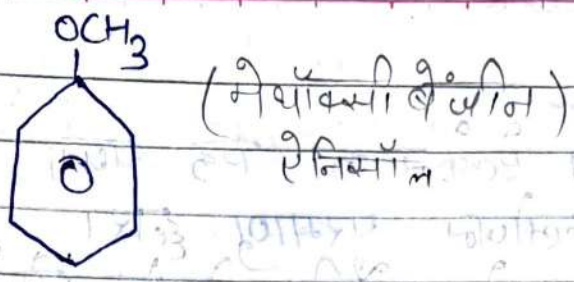 OCH3
(मेथॉक्सी बेंजीन)
ऐनिसॉल